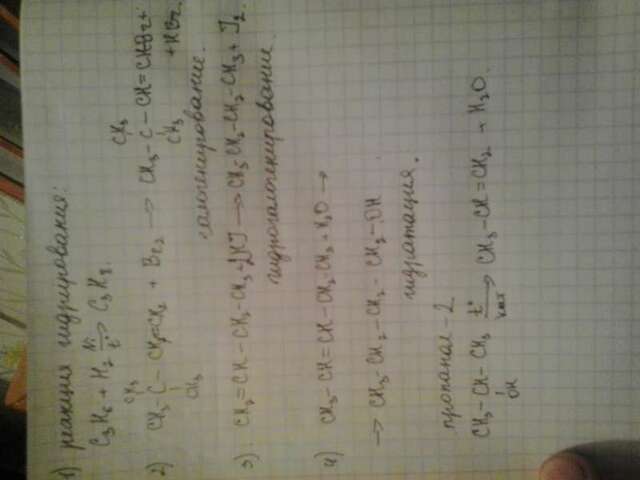 1) реакция гидрирования:
C3H6 + H2 Ni t° → C3H8.
2) CH3 - C - CH=CH2 + Br2 → CH3 - C - CH=CHBr + + HBr.
CH3 CH3 CH3 CH3
галогенирование.
3) CH2=CH-CH2-CH3 + 2HJ → CH3-CH2-CH2-CH3 + J2.
гидрогалогенирование.
4) CH3-CH=CH-CH2-CH3 + H2O →
→ CH3-CH2-CH2-CH2-OH
гидратация.
пропанол-2
CH3-CH-CH3 t° кат → CH3-CH=CH2 + H2O.
OH